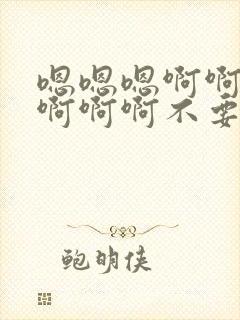 嗯嗯嗯啊啊
啊啊啊不要
鲍明侠